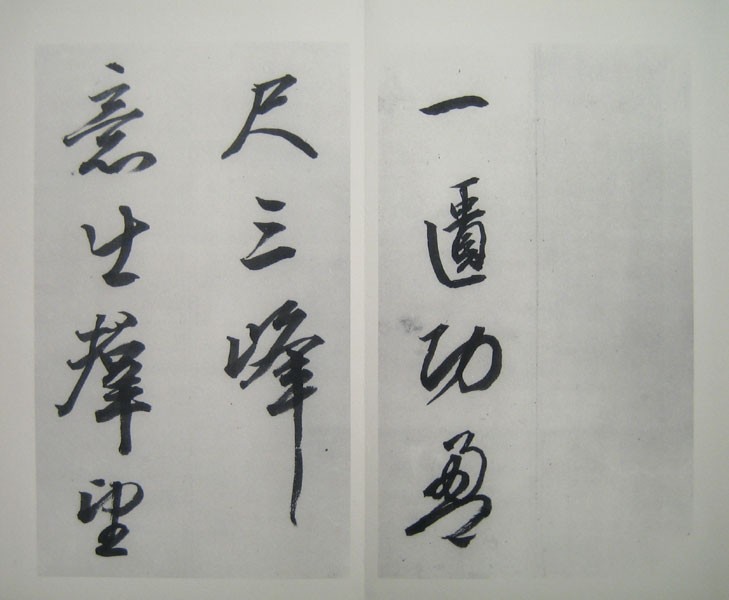 一匱功盈
尺三峰
意出羣望